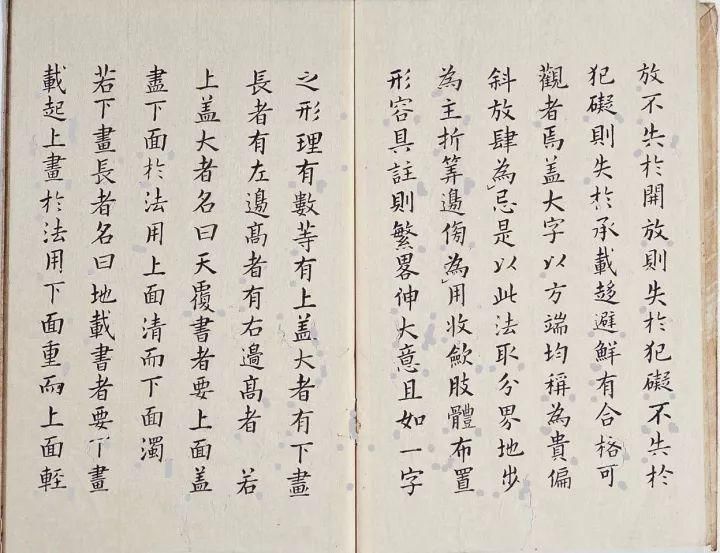 放不失於開放則失於犯礙不失於
犯礙則失於承載趍避鮮有合格可
觀者焉盖大字以方端均稱為貴偏
斜放肆為忌是以此法取分界地步
為主折筭邊傍為用收歛肢體布置
形容具註則繁畧伸大意且如一字
之形理有數等有上盖大者有下畫
長者有左邊髙者有右邉髙者若
上盖大者名曰天覆書者要上面盖
盡下面於法用上面清而下面濁
若下畫長者名曰地載書者要下畫
載起上畫於法用下面重而上面輕